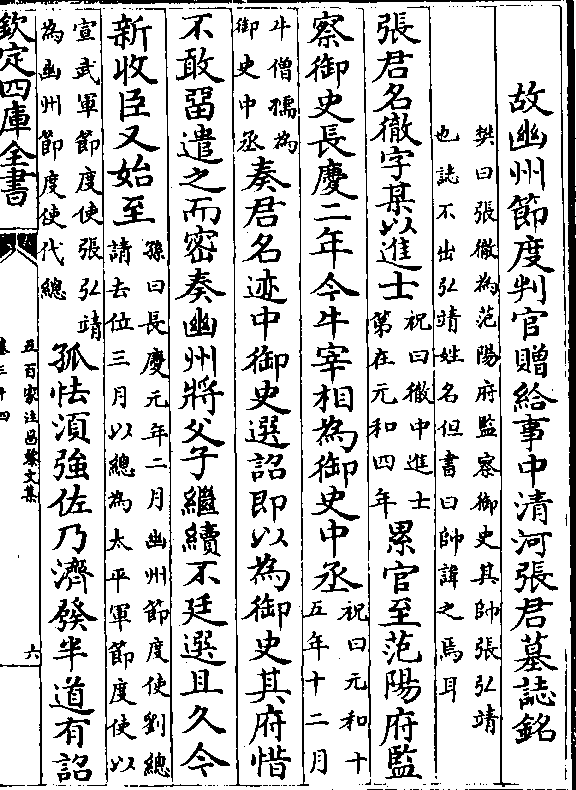 故幽州節度判官贈給事中清河張君墓誌銘
樊曰張徹為范陽府監察御史其帥張弘靖
也誌不出弘靖姓名但書曰帥諱之焉耳
張君名徹字某以進士
祝曰徹中進士
第在元和四年
累官至范陽府監
察御史長慶二年今牛宰相為御史中丞
祝曰元和十
五年十二月
牛僧孺為
御史中丞
奏君名迹中御史選詔即以為御史其府惜
不敢留遣之而密奏幽州將父子繼續不廷選且久今
新收臣又始至
孫曰長慶元年二月幽州節度使劉總
請去位三月以總為太平軍節度使以
宣武軍節度使張弘靖
為幽州節度使代總
孤怯須強佐乃濟發半道有詔
欽定四庫全書
五百家注昌黎文集
卷三十四
六